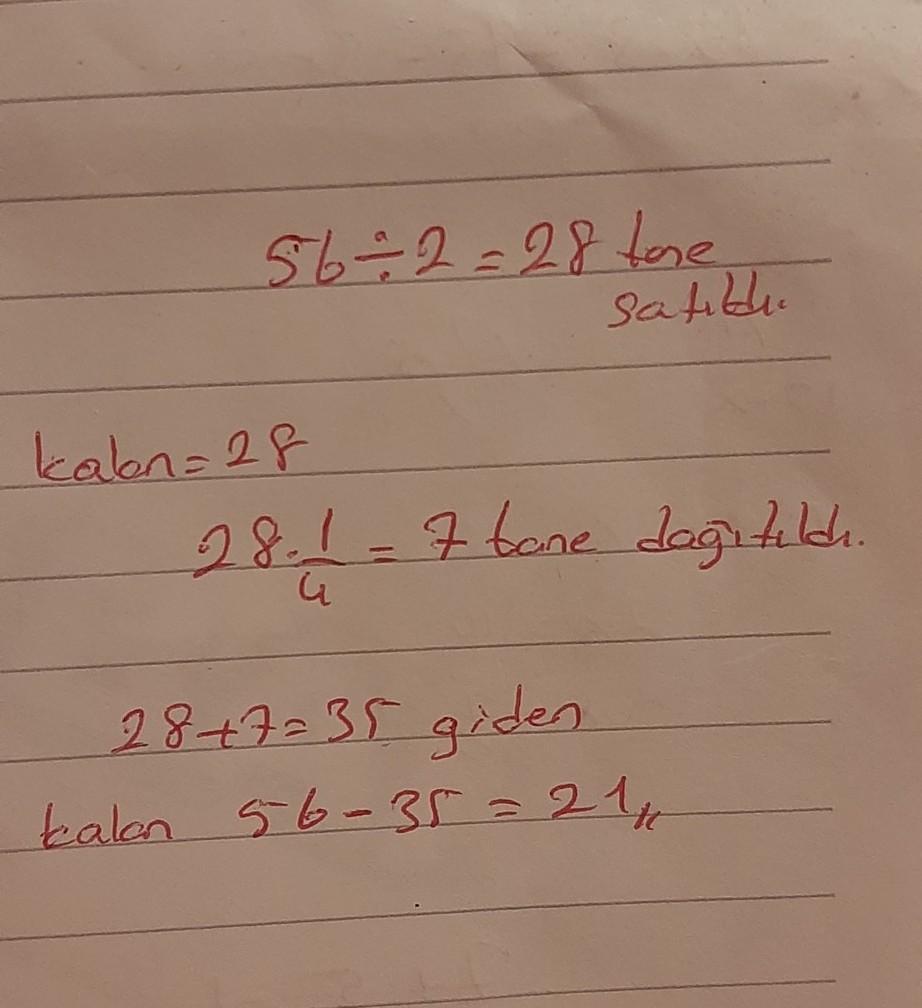 56÷2=28 tane
satıldı.
kalan=28
28.1/4 = 7 tane dağıtıldı.
28+7=35 giden
kalan 56-35=21//